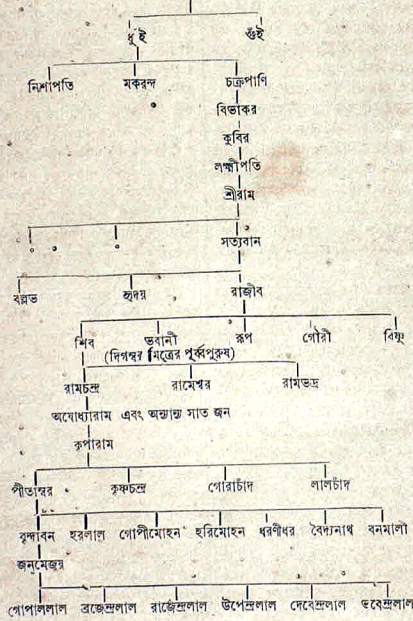 ধুঁই গুঁই
নিশাপতি মকরন্দ চক্রপাণি
বিভাকর
কুবির
লক্ষ্মীপতি
শ্রীরাম
সত্যবান
বল্লভ হৃদয় রাজীব
শিব ভবানী রূপ গৌরী বিষ্ণু
(দিগম্বর মিত্রের পূর্ব্বপুরুষ)
রামচন্দ্র রামেশ্বর রামভদ্র
অযোধ্যারাম এবং অন্যান্য সাত জন
কৃপারাম
পীতাম্বর কৃষ্ণচন্দ্র গোরাচাঁদ লালচাঁদ
বৃন্দাবন হরলাল গোপীমোহন হরিমোহন ধরণীধর বৈদ্যনাথ বনমালী
জন্মেজয়
গোপাললাল ব্রজেন্দ্রলাল রাজেন্দ্রলাল উপেন্দ্রলাল দেবেন্দ্রলাল ভবেন্দ্রলাল